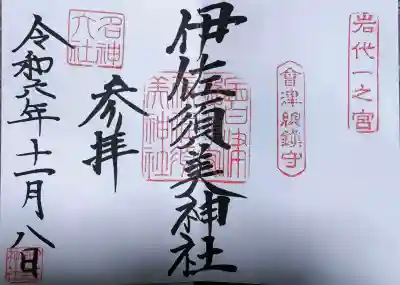 岩代一之宮
會津總鎮守
伊佐須美神社
参拝
名神大社
令和六年十一月八日